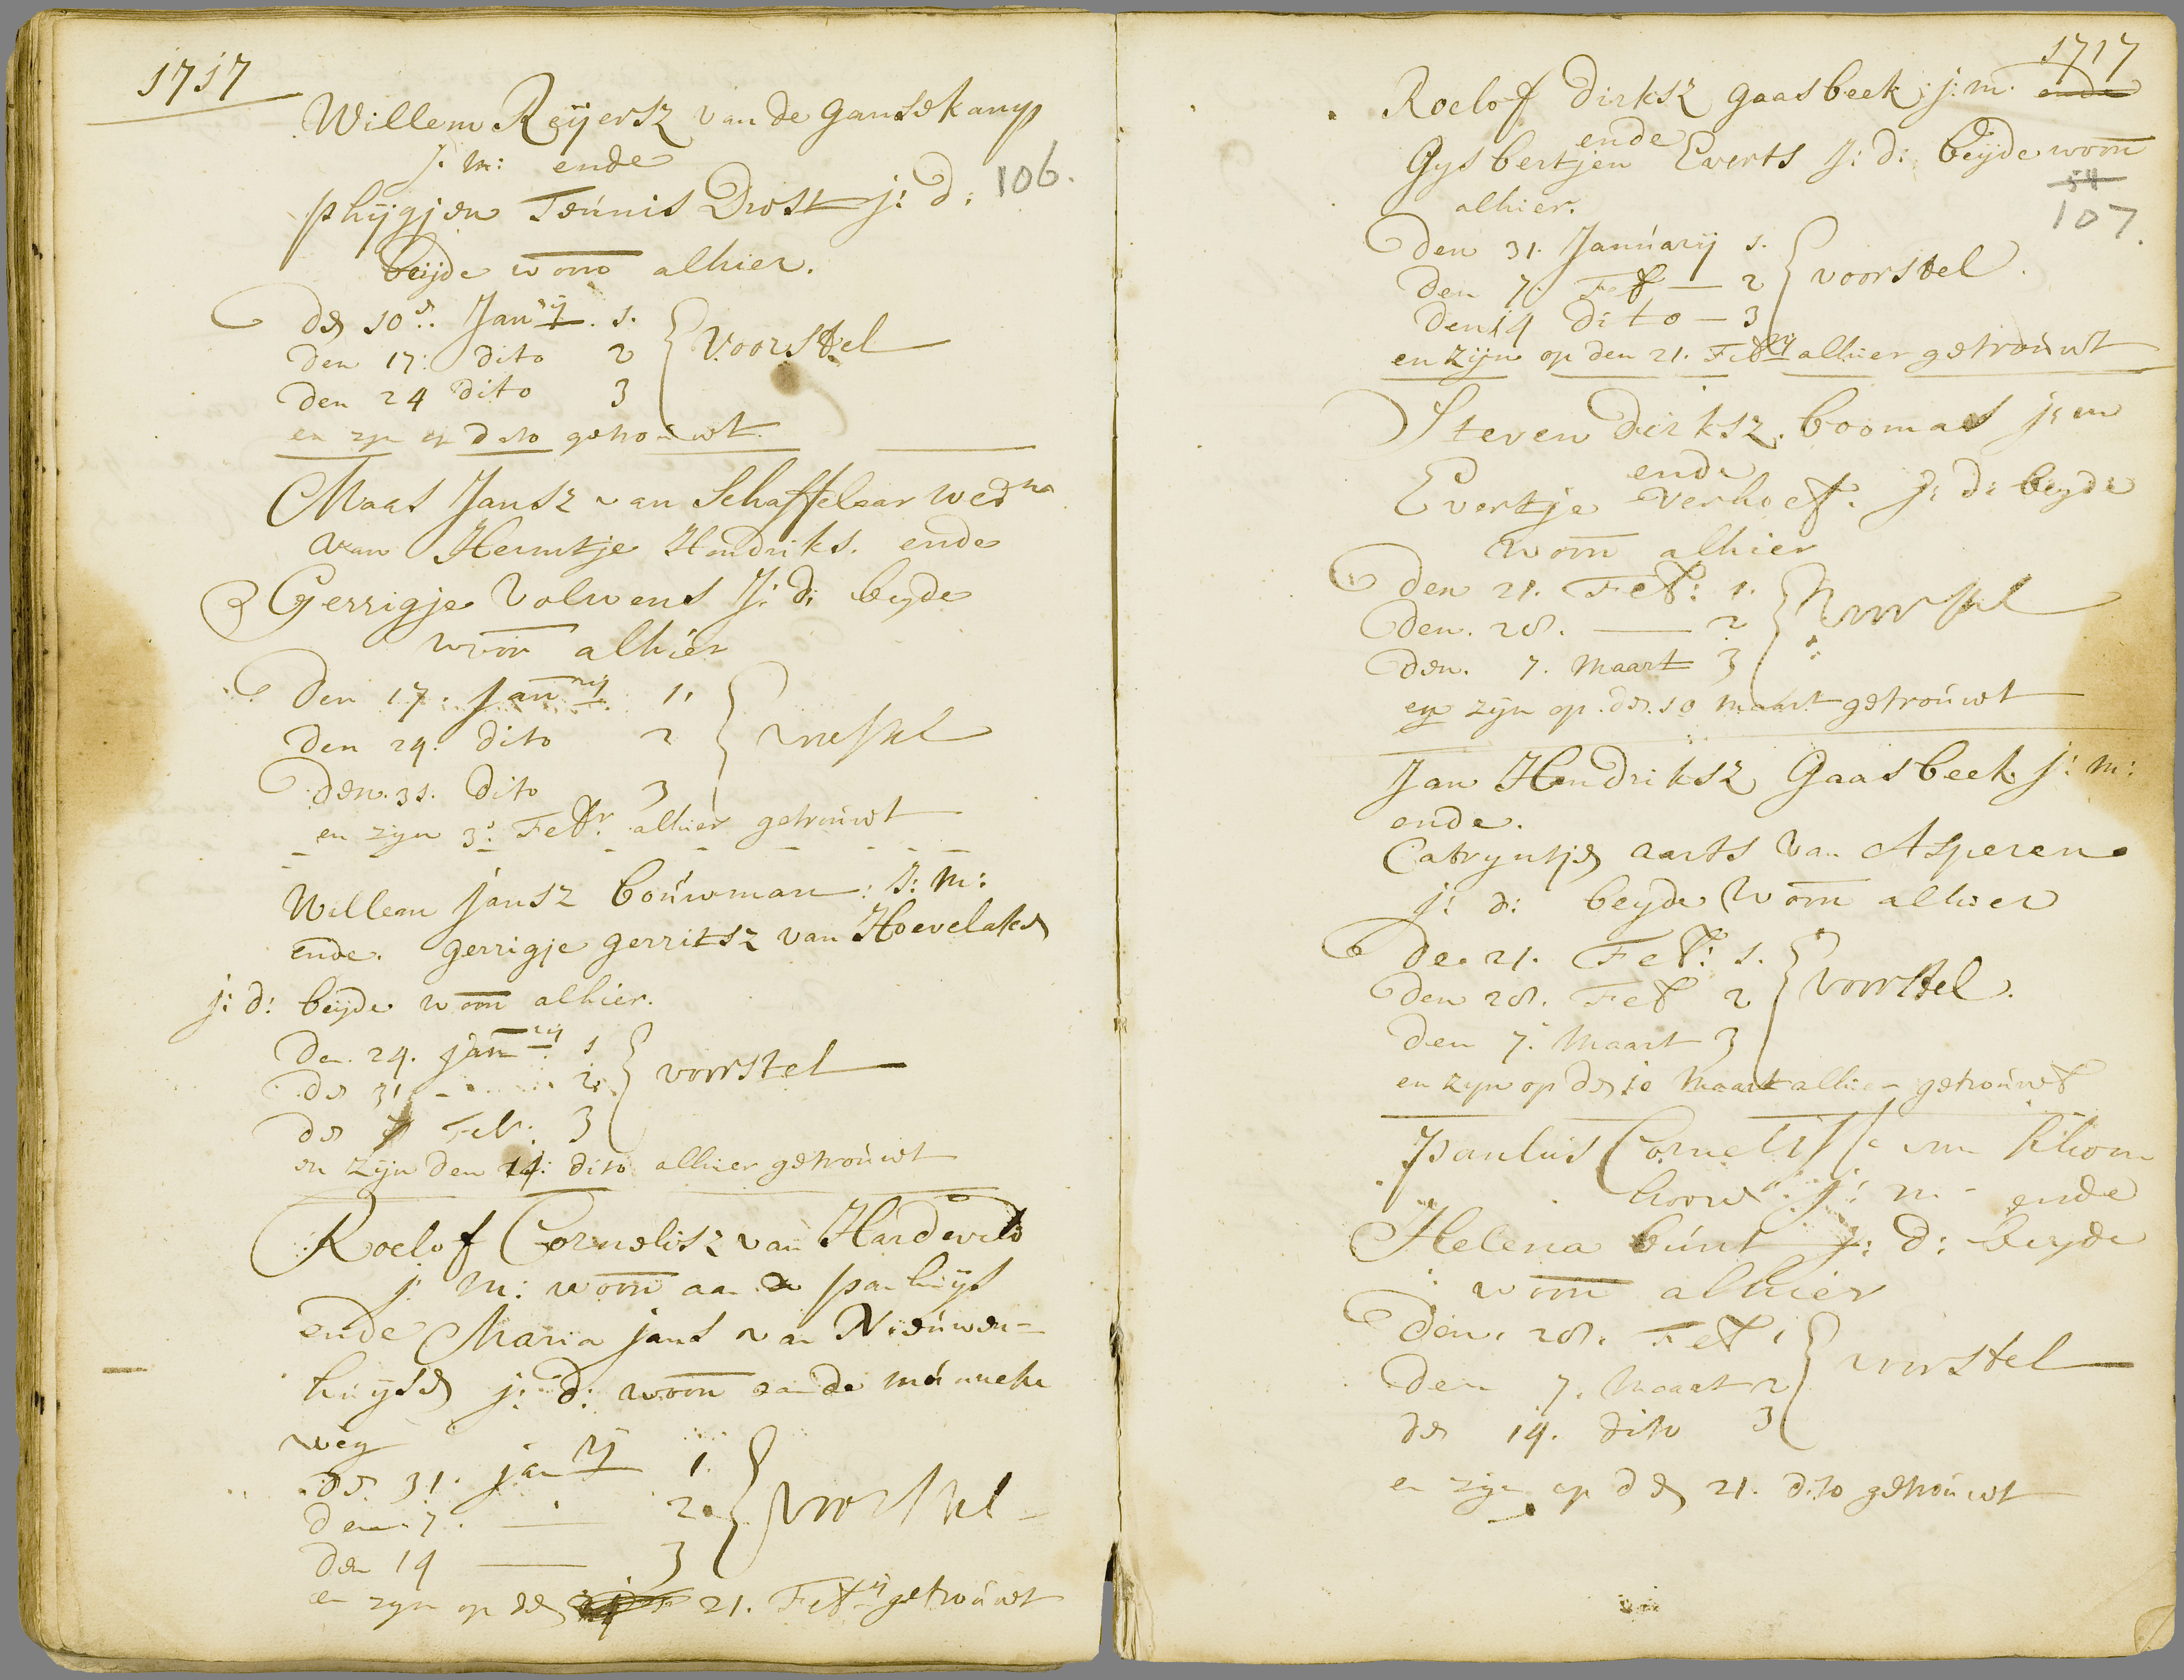 1717
Willem Reijersz van de Gansekamp
j. m: ende
phijgjen Teúnis Drost j: d:
106.
beijde woon alhier.
den 10e. Janrij. 1.
den 17: dito 2
den 24 dito 3
Voorstel
en zijn op dito getroúwt
Maas Jansz van Schaffelaar wedr
van Hermtje Hendriks. ende
Gerrigje Volwens J: d: beyde
woon alhier
den 17. Janrij 1.
den 24. dito 2
den. 31. dito 3
voorstel
en zijn 3: Febr. alhier getroúwt
Willem Jansz boúwman: j: m:
ende. gerrigje gerritsz van Hoevelaken
j: d: beijde woon alhier.
den 24. janrij 1
den 31 - 2.
den 7 Feb: 3
voorstel
en zijn den 14: dito alhier getroúwt
Roelof Cornelisz van Hardevelt
j. m: woon aan de panhúijs
ende Maria jans van Nieúwen-
húijsen j: d: woon aan de múnneke
weg
den 31. janrij 1.
den 7. — 2.
den 14 — 3
voorstel
en zijn op den 21. Febrij getroúwt
1717
Roelof Dirksz gaasbeek j: m. ende
ende
Gysbertjen Everts J: d: beijde woon
54
107.
alhier.
den 31. Janúarij 1.
den 7. Feb — 2
den 14 dito — 3
voorstel.
en zijn op den 21. Febrij alhier getroúwt
Steven Dirksz. boomas j: m
ende
Evertje Verhoef. J: d: beyde
woon alhier
den 21. Feb: 1.
den. 28. — 2
den. 7. Maart 3
voorstel
en zijn op den. 10 Maart getroúwt
Jan Hendriksz Gaasbeek j: m:
ende.
Catryntjen aarts van Asperen
j: d: beyde woon alhier
den 21. Feb: 1.
den 28. Feb 2
den 7. Maart 3
voorstel.
en zijn op den 10 Maart alhier getroúwt
Paulús Cornelisse van
j: m: ende
Helena búnt j: d: beyde
woon alhier
den. 28. Feb 1
den 7. Maart 2
den 14. dito 3
voorstel
en zijn op den 21. dito getroúwt